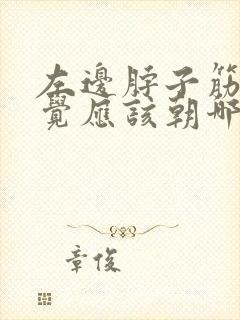 左邊脖子筋
覺應該朝哪
章俊